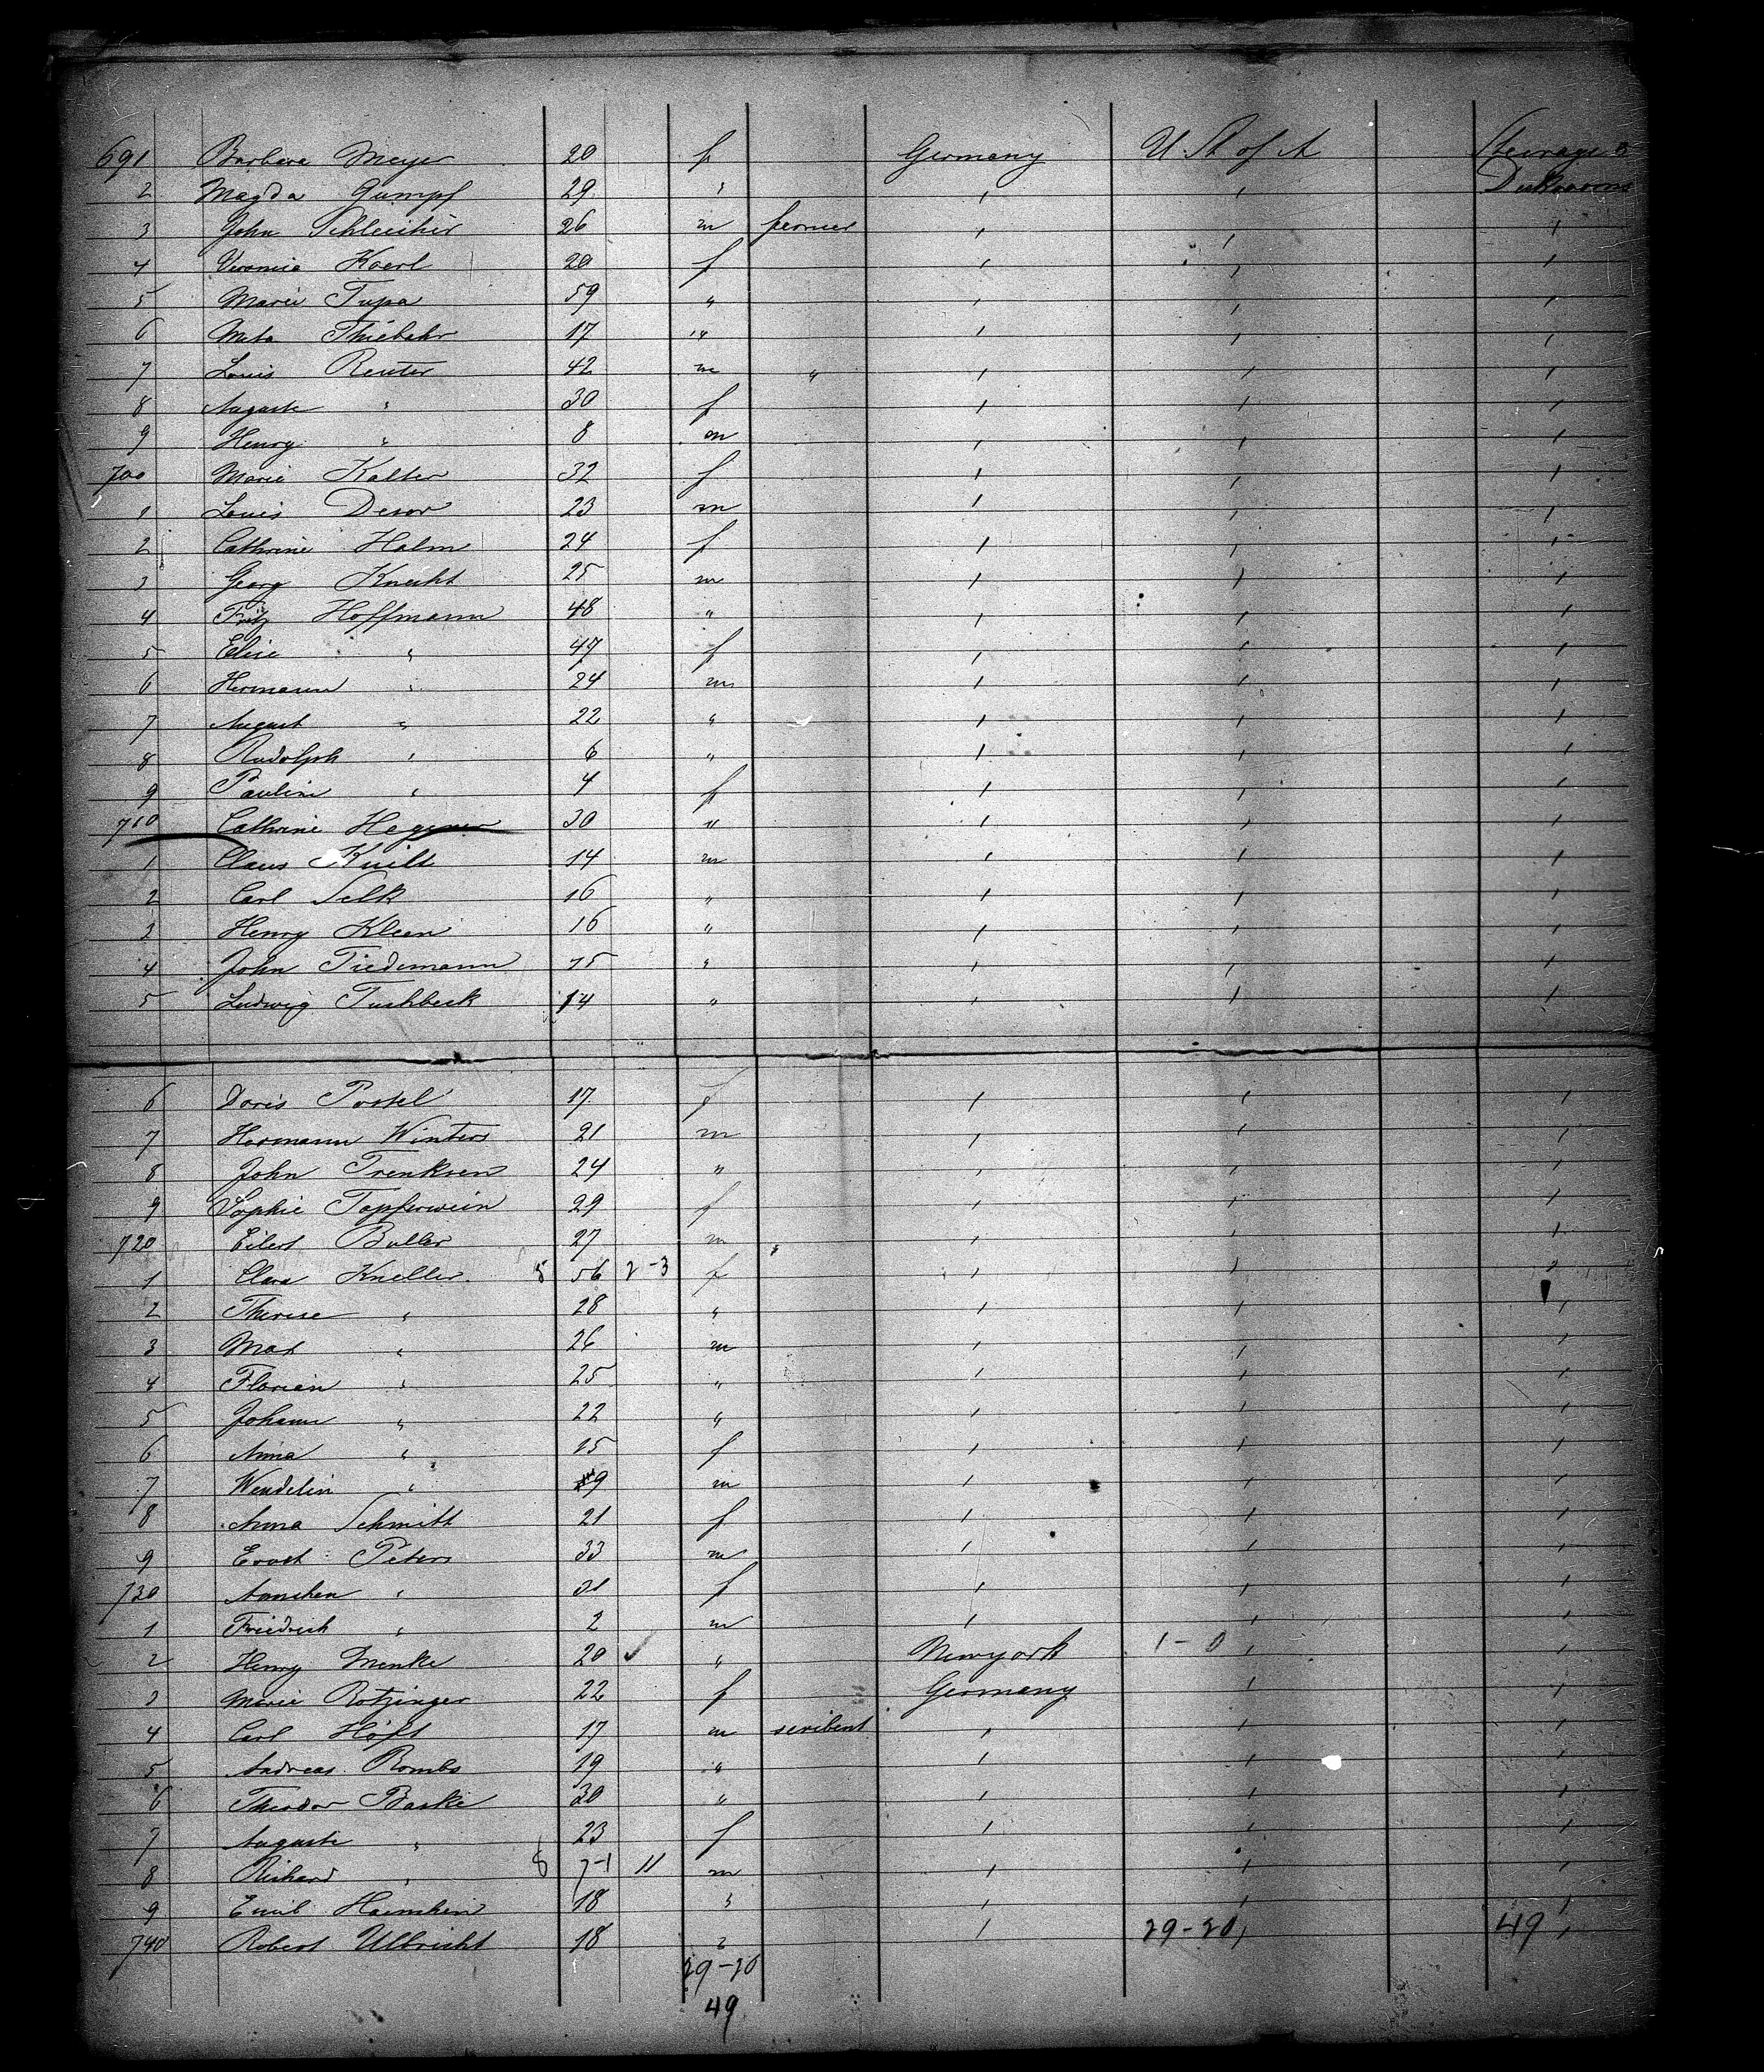 691 Barbara Meyer 20 f Germany U. St of A Steerage &
2 Magda Gumpf 29 " " " Deckrooms
3 John Schleicher 26 m fermer " " "
4 Veronica Kaerl 20 f " " "
5 Marie Tupa 59 " " " "
6 Meta Thiebahr 17 " " " "
7 Louis Reuter 42 m " " " "
8 Auguste " 30 f " " "
9 Henry " 8 m " " "
700 Marie Kalter 32 f " " "
1 Louis Desor 23 m " " "
2 Cathrine Halm 24 f " " "
3 Georg Knecht 25 m " " "
4 Fritz Hoffmann 48 " " " "
5 Elise " 47 f " " "
6 Hermann " 24 m " " "
7 August " 22 " " " "
8 Rudolph " 6 " " " "
9 Pauline " 4 f " " "
710 Cathrine 30 " " " "
1 Claus 14 m " " "
2 Carl Selk 16 " " " "
3 Henry Kleen 16 " " " "
4 John Tiedemann 15 " " " "
5 Ludwig 14 " " " "
6 Doris Postel 17 " " "
7 Hermann Winters 21 m " " "
8 John Trenksen 24 " " " "
9 Sophie Topferwein 29 f " " "
720 Eilert Buller 27 m " " " "
1 Clara Kneller 8 56 2-3 f " " "
2 Therese " 28 " " " "
3 Max " 26 m " " "
4 Florian " 25 " " " "
5 Johann " 22 " " " "
6 Anna " 15 f " " "
7 Wendelin " 9 m " " "
8 Anna Schmitt 21 f " " "
9 Ernst Peters 33 m " " "
730 Annchen " 31 f " " "
1 Friedrich " 2 m " " "
2 Henry Menke 20 ✓ " Newyork 1-0 " "
3 Marie Rotzinger 22 f Germany " "
4 Carl Höft 17 m scribent " " "
5 Andreas Rombs 19 " " " "
6 Theodor Baske 30 " " " "
7 Auguste " 23 f " " "
8 Richard " 8 7-1 11 m " " "
9 Emil 18 " " " "
740 Robert Ulbricht 18 " " 29-20 " 49 "
29-20
49